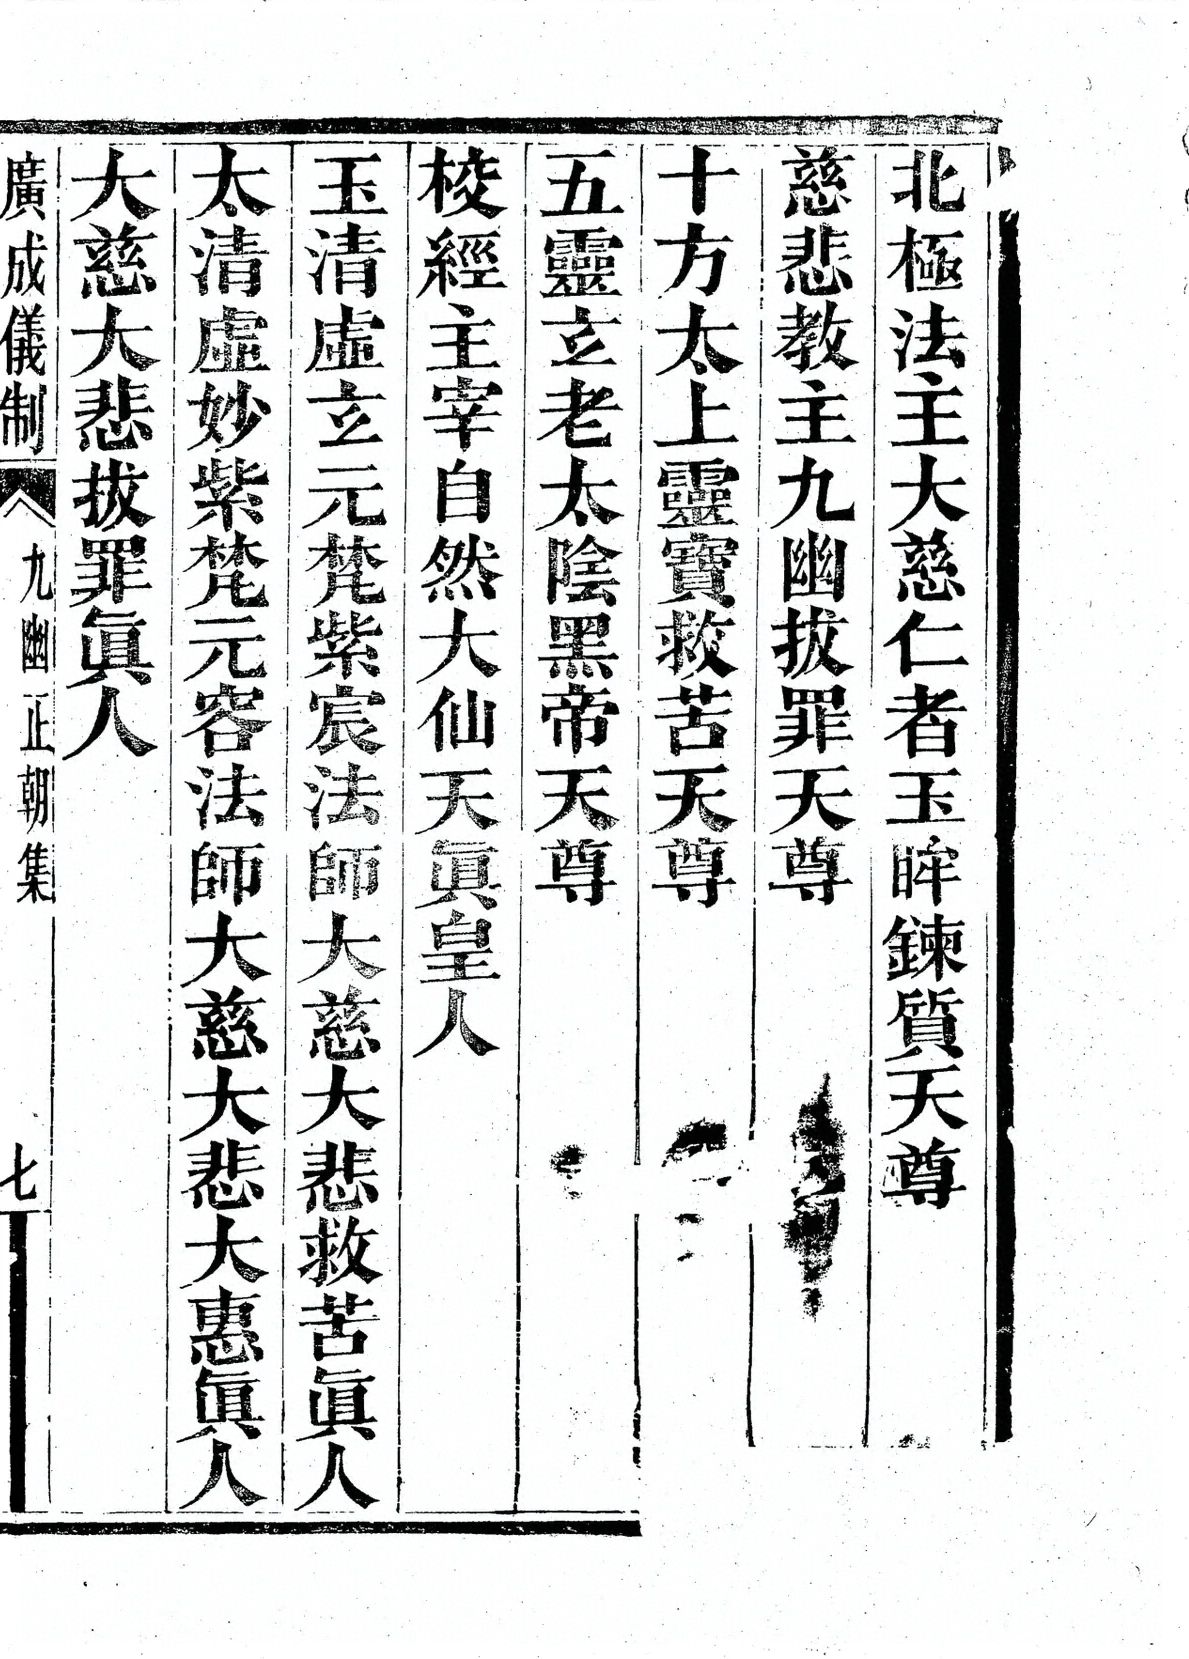 北極法主大慈仁者玉眸鍊質天尊
慈悲教主九幽拔罪天尊
十方太上靈寶救苦天尊
五靈玄老太陰黑帝天尊
校經主宰自然大仙天眞皇人
玉清虛玄元梵紫宸法師大慈大悲救苦眞人
太清虛妙紫梵元容法師大慈大悲大惠眞人
大慈大悲拔罪眞人
廣成儀制 九幽正朝集 七